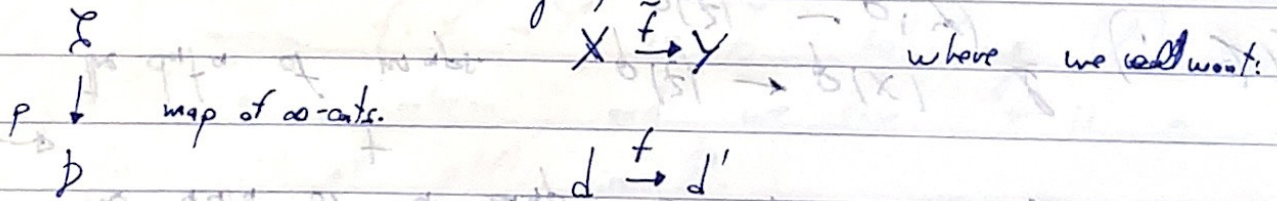 C X f̃→ Y where we want:
p ↓ map of ∞-cats.
D d f→ d'